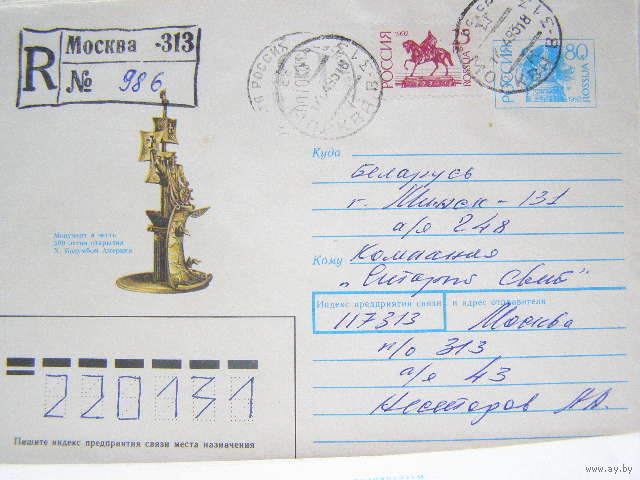 R Москва -313
№ 986
РОССИЯ 1992 ROSSIJA
РОССИЯ 80 ROSSIJA 1992
МОСКВА В-313
Монумент в честь
500-летия открытия
Х. Колумбом Америки
Куда Беларусь
г. Минск - 131
а/я 248
Кому Компания
Индекс предприятия связи и адрес отправителя
117313 Москва
п/о 313
а/я 43
Нестеров
220131
Пишите индекс предприятия связи места назначения
www.ay.by